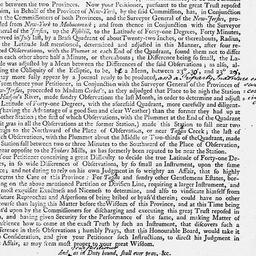 between the two Provinces. Now your Petitioner, pursuant to the great Trust reposed
in Behalf of the Province of New-York, by the said Commission, has, in Conjunction
the Commissioners of both Provinces, and the Surveyor General of the New-Jerseys, pro-
from New-York to Mahackamack; and from thence in Conjunction with the Surveyor
General of the Jerseys, up the Fishkill, to the Latitude of Forty-one Degrees, Forty Minutes,
in July last, by a Brass Quadrant of about Twenty-two Inches, or thereabouts, Radius,
the Latitude last mentioned, determined and adjusted in this Manner, after four re-
Observations, with the Plummet at each End of the Quadrant, found them not to differ
each other above half a Minute, or thereabouts; the Difference being so small, the La-
was adjusted by a Mean between the Differences of the said Observations; to also, al-
the Obliquity of the Ecliptic, to be, by a Mean, between 23°. 29'. and 23°
may more fully appear by a Journal ready to be produced,
From thence your Petitioner, in Conjunction with the Surveyor General of the Province of
Jerseys, proceeded to Mindert Cook's, as they adjudged that Place to be nigh the Station
Hudson's River, made sundry Observations the last Month, in order to determine and adjust
Latitude of Forty-one Degrees, with the aforesaid Quadrant, more carefully and diligent-
(having the Advantage of a good Sun and clear Weather) than the former they had at
other Station; the first of which Observations, with the Plummet at the End of the Quadrant
as in all the Observations at the former Station, made this Station to fall near two
to the Northward of the Place of Observation, or near Tappan Creek; the last of
Observations, with the Plummer about the Middle or Two-thirds of the Quadrant, made
Station fall between two or three Minutes to the Southward of the Place of Observation,
near opposite to the Yonkers Mills, as has formerly been reputed to be near the Station.
Your Petitioner conceiving a great Difficulty to decide the true Latitude of Forty-one De-
in so wide Differences of Observations, by so small an Instrument, upon the same
and not daring to rely on his own Judgment in so weighty an Affair, that so highly
concerns the Care of this Province: For Tappan and sundry other Gentlemens Estates, bor-
on the above mentioned Partition or Division Line, requiring a larger Instrument, and
most exquisite Exactness and Niceness to determine, and also to vindicate himself from
future Reproaches and Aspersions of being bribed or byass'd therein; could have no other
than laying this Matter before the Wisdom of this Province, and at this Time being
upon by the Commissioners for discharging and executing this great Trust reposed in
and having given Security for the Performance of the same, and making Matter of
how to come at the exact Truth by such an Instrument, that discovers such a
Difference in their Observations; humbly Prays, that this honourable Board, would take it
Consideration, and give your Petitioner such Instructions, to direct his Judgment in
Affair, as may seem most proper to your great Wisdom.
And, as in Duty bound, shall ever pray, &c.